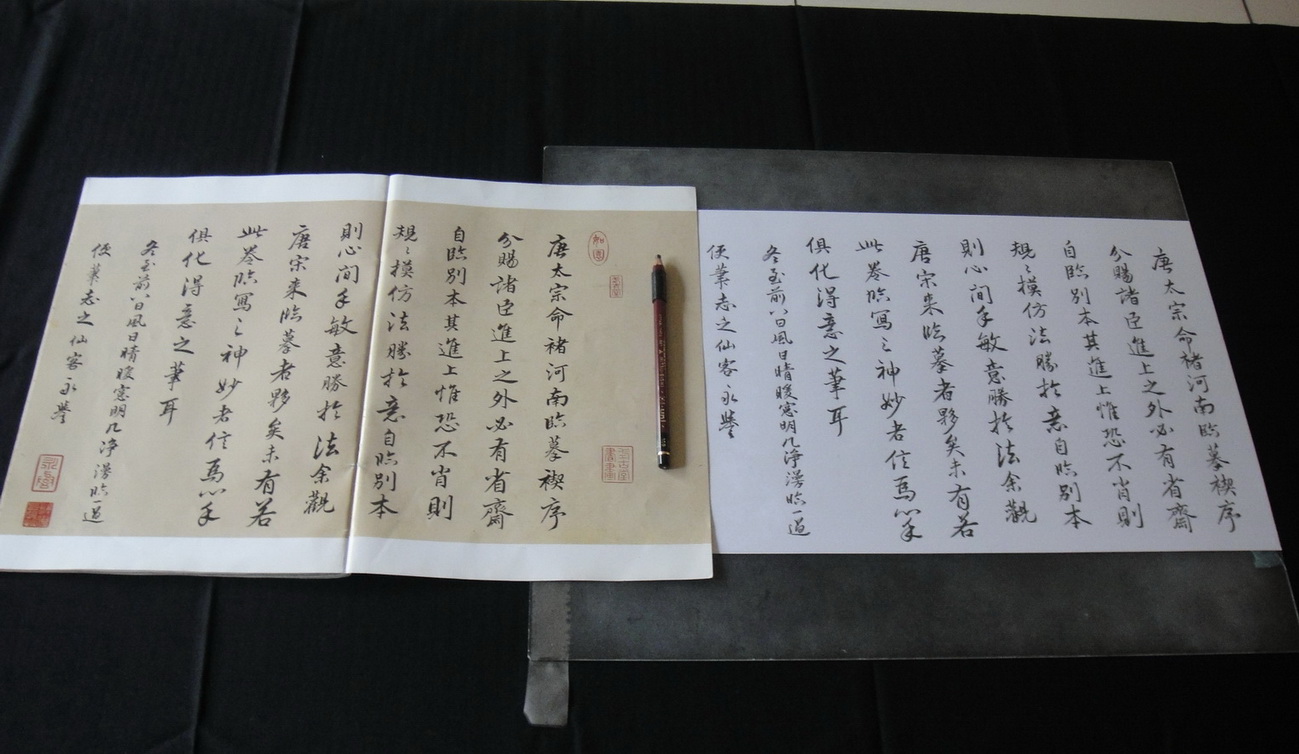 唐太宗命褚河南臨摹禊序
分賜諸臣進上之外必有省齋
自臨別本其進上惟恐不肖則
規〻模仿法勝於意自臨別本
則心間手敏意勝於法余觀
唐宋來臨摹者夥矣未有若
此卷臨寫之神妙者信焉心手
俱化得意之筆耳
冬至前八日風日晴暖窓明几淨漫臨一過
便筆志之仙客永譽
唐太宗命褚河南臨摹禊序
分賜諸臣進上之外必有省齋
自臨別本其進上惟恐不肖則
規〻模仿法勝於意自臨別本
則心間手敏意勝於法余觀
唐宋來臨摹者夥矣未有若
此卷臨寫之神妙者信焉心手
俱化得意之筆耳
冬至前八日風日晴暖窓明几淨漫臨一過
便筆志之仙客永譽